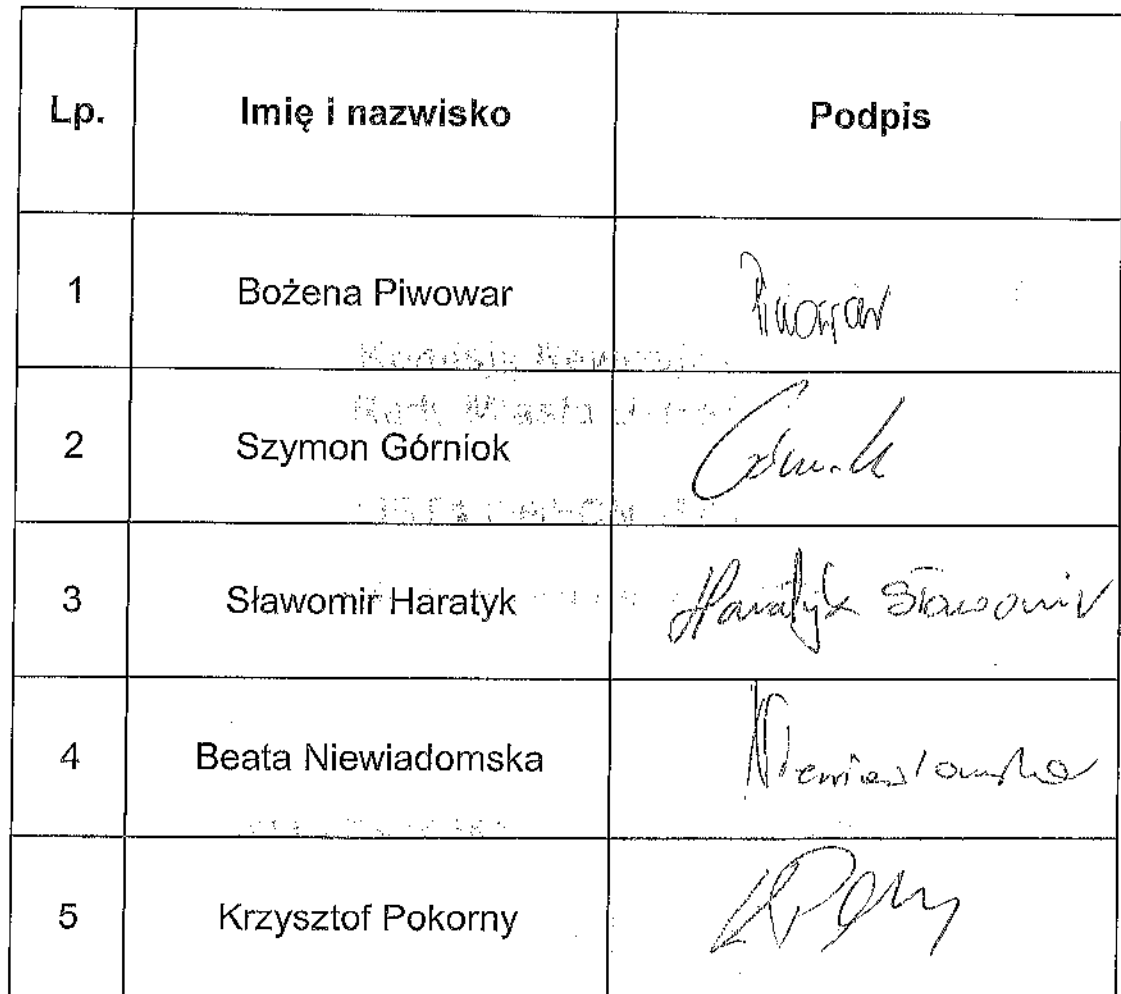 Lp. Imię i nazwisko Podpis
1 Bożena Piwowar Piwowar
2 Szymon Górniok
3 Sławomir Haratyk Haratyk Sławomir
4 Beata Niewiadomska Niewiadomska
5 Krzysztof Pokorny